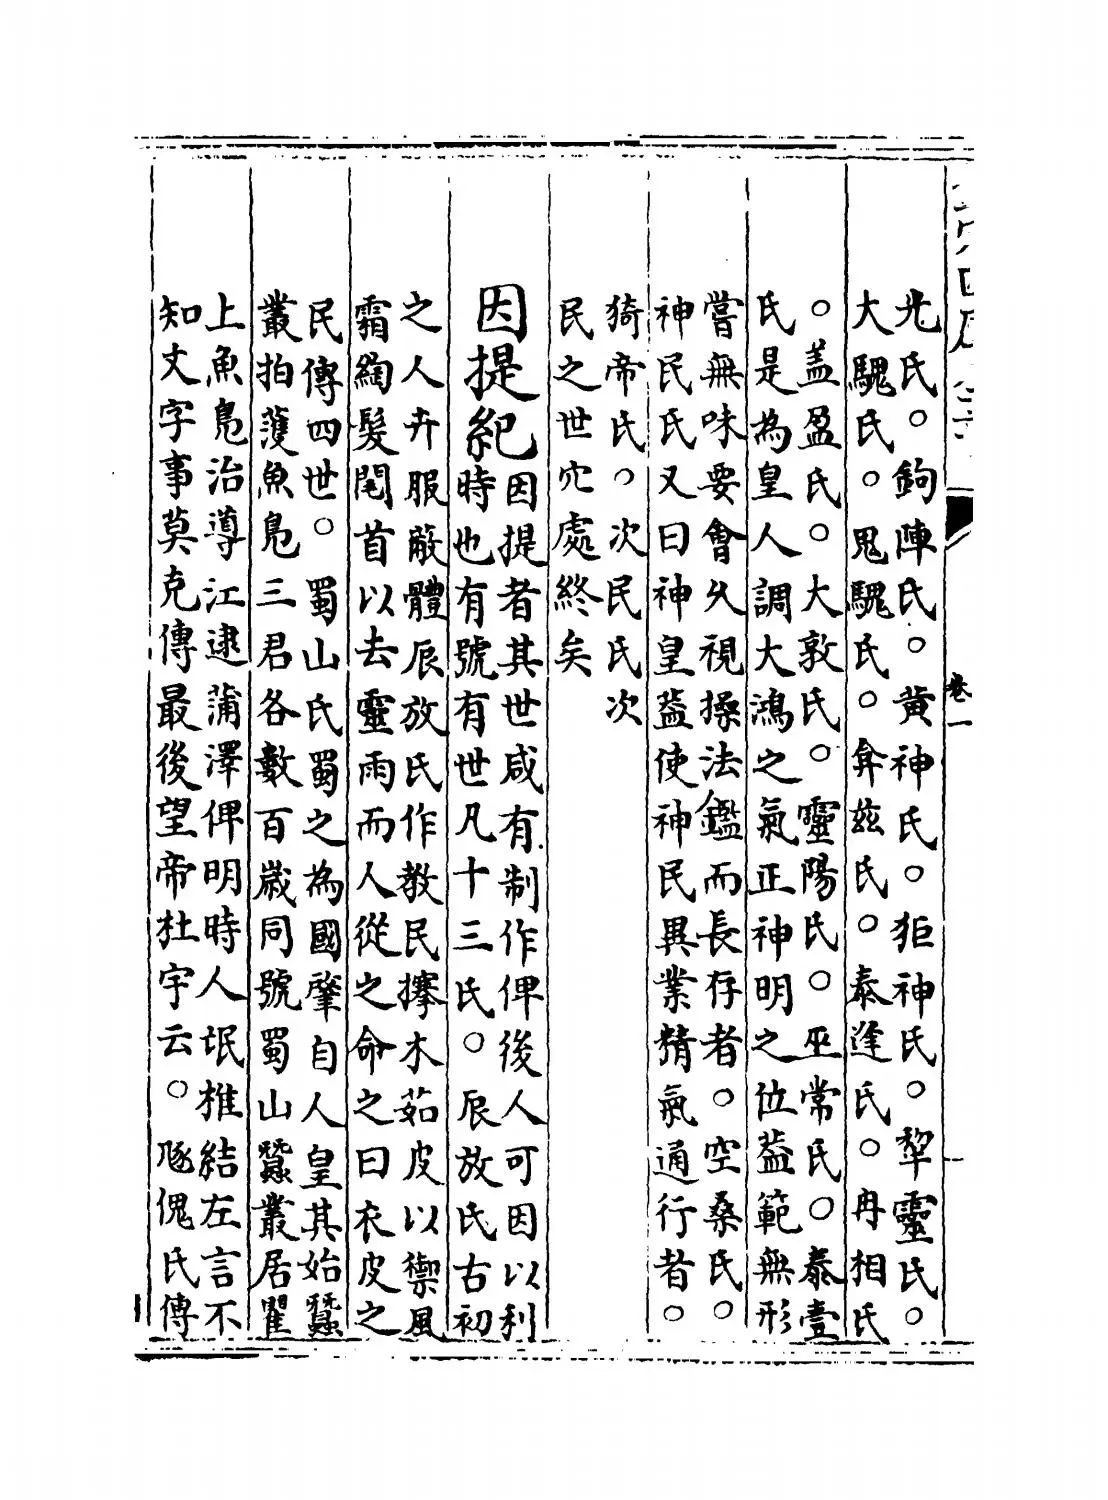 卷一
光氏。鉤陣氏。黄神氏。狟神氏。犂靈氏。
大騩氏。鬼騩氏。弇兹氏。泰逢氏。冉相氏
。盖盈氏。大敦氏。靈陽氏。巫常氏。泰壹
氏是為皇人調大鴻之氣正神明之位葢範無形
嘗無味要會久視操法鑑而長存者。空桑氏。
神民氏又曰神皇葢使神民異業精氣通行者。
猗帝氏。次民氏次
民之世穴處終矣
因提紀
因提者其世咸有制作俾後人可因以利
時也有號有世凡十三氏。辰放氏古初
之人卉服蔽體辰放氏作教民攓木茹皮以禦風
霜綯髮閐首以去靈雨而人從之命之曰衣皮之
民傳四世。蜀山氏蜀之為國肇自人皇其始蠶
叢拍濩魚鳬三君各數百歲同號蜀山蠶叢居瞿
上魚鳬治導江逮蒲澤俾明時人氓椎結左言不
知文字事莫克傳最後望帝杜宇云。豗傀氏傳